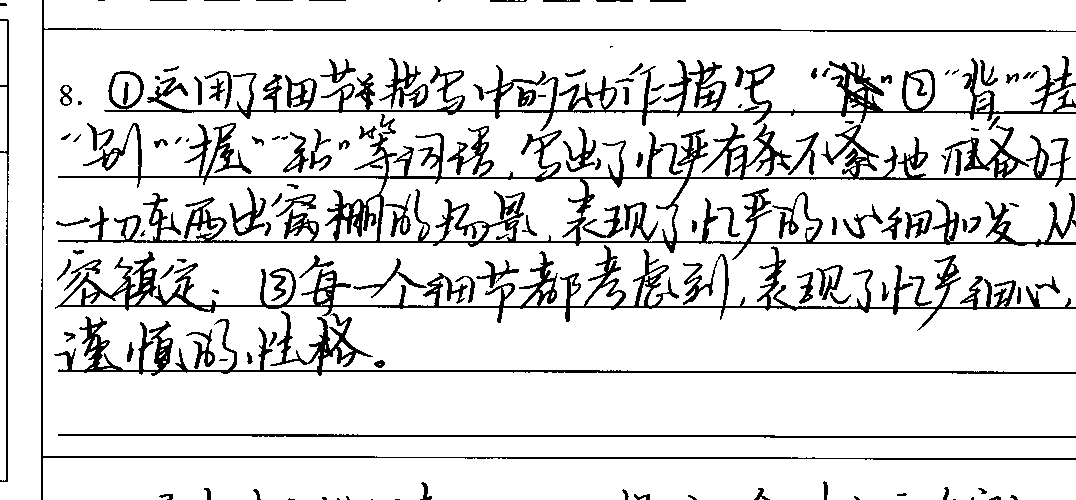 8. ①运用了细节描写中的动作描写，②“背”“挂
“别”“握”“拈”等词语，写出了忆严有条不紊地准备好
一切东西出窝棚的场景，表现了忆严的心细如发，从
容镇定；③每一个细节都考虑到，表现了忆严细心，
谨慎的性格。